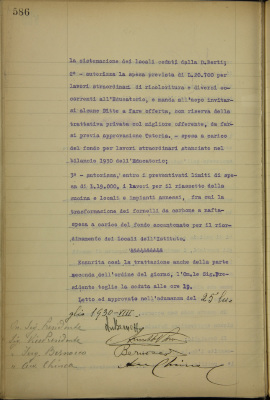 586
la sistemazione dei locali ceduti dalla R.
2° - autorizza la spesa prevista di L.25.700 per
lavori straordinari di ricoloritura e diversi oc-
correnti all'Educatorio, e manda all'uopo invitar-
si alcune Ditte a fare offerta, con riserva della
trattativa privata col migliore offerente, da far-
si previa approvazione Tutoria. - spesa a carico
del fondo per lavori straordinari stanziato nel
bilancio 1930 dell'Educatorio;
3° - autorizza, entro i preventivati limiti di spe-
sa di L.19.000, i lavori per il riassetto della
cucina e locali e impianti annessi, fra cui la
trasformazione dei fornelli da carbone a nafta-
spesa a carico del fondo accantonato per il rior-
dinamento dei locali dell'Istituto.
Esaurita così la trattazione anche della parte
seconda dell'ordine del giorno, l'On.le Sig.Pre-
sidente toglie la seduta alle ore 19.
Letto ed approvato nell'adunanza del 25 lu-
glio 1930-VIII.
Sig. Presidente
Sig. Vice Presidente